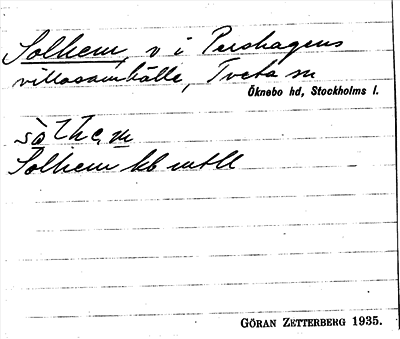 Solhem, v i Pershagens
villasamhälle, Tveta sn
Öknebo hd, Stockholms l.
Solhem
GÖRAN ZETTERBERG 1935.